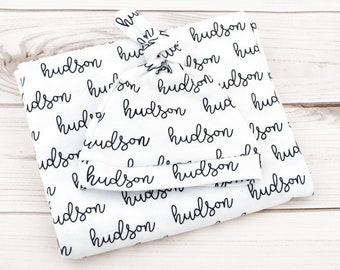 hudson hudson
hudson hudson
hudson hudson hudson
hudson hudson
hudson hudson hudson
hudson hudson
hudson hudson
hudson hudson
hudson hudson
hudson hudson